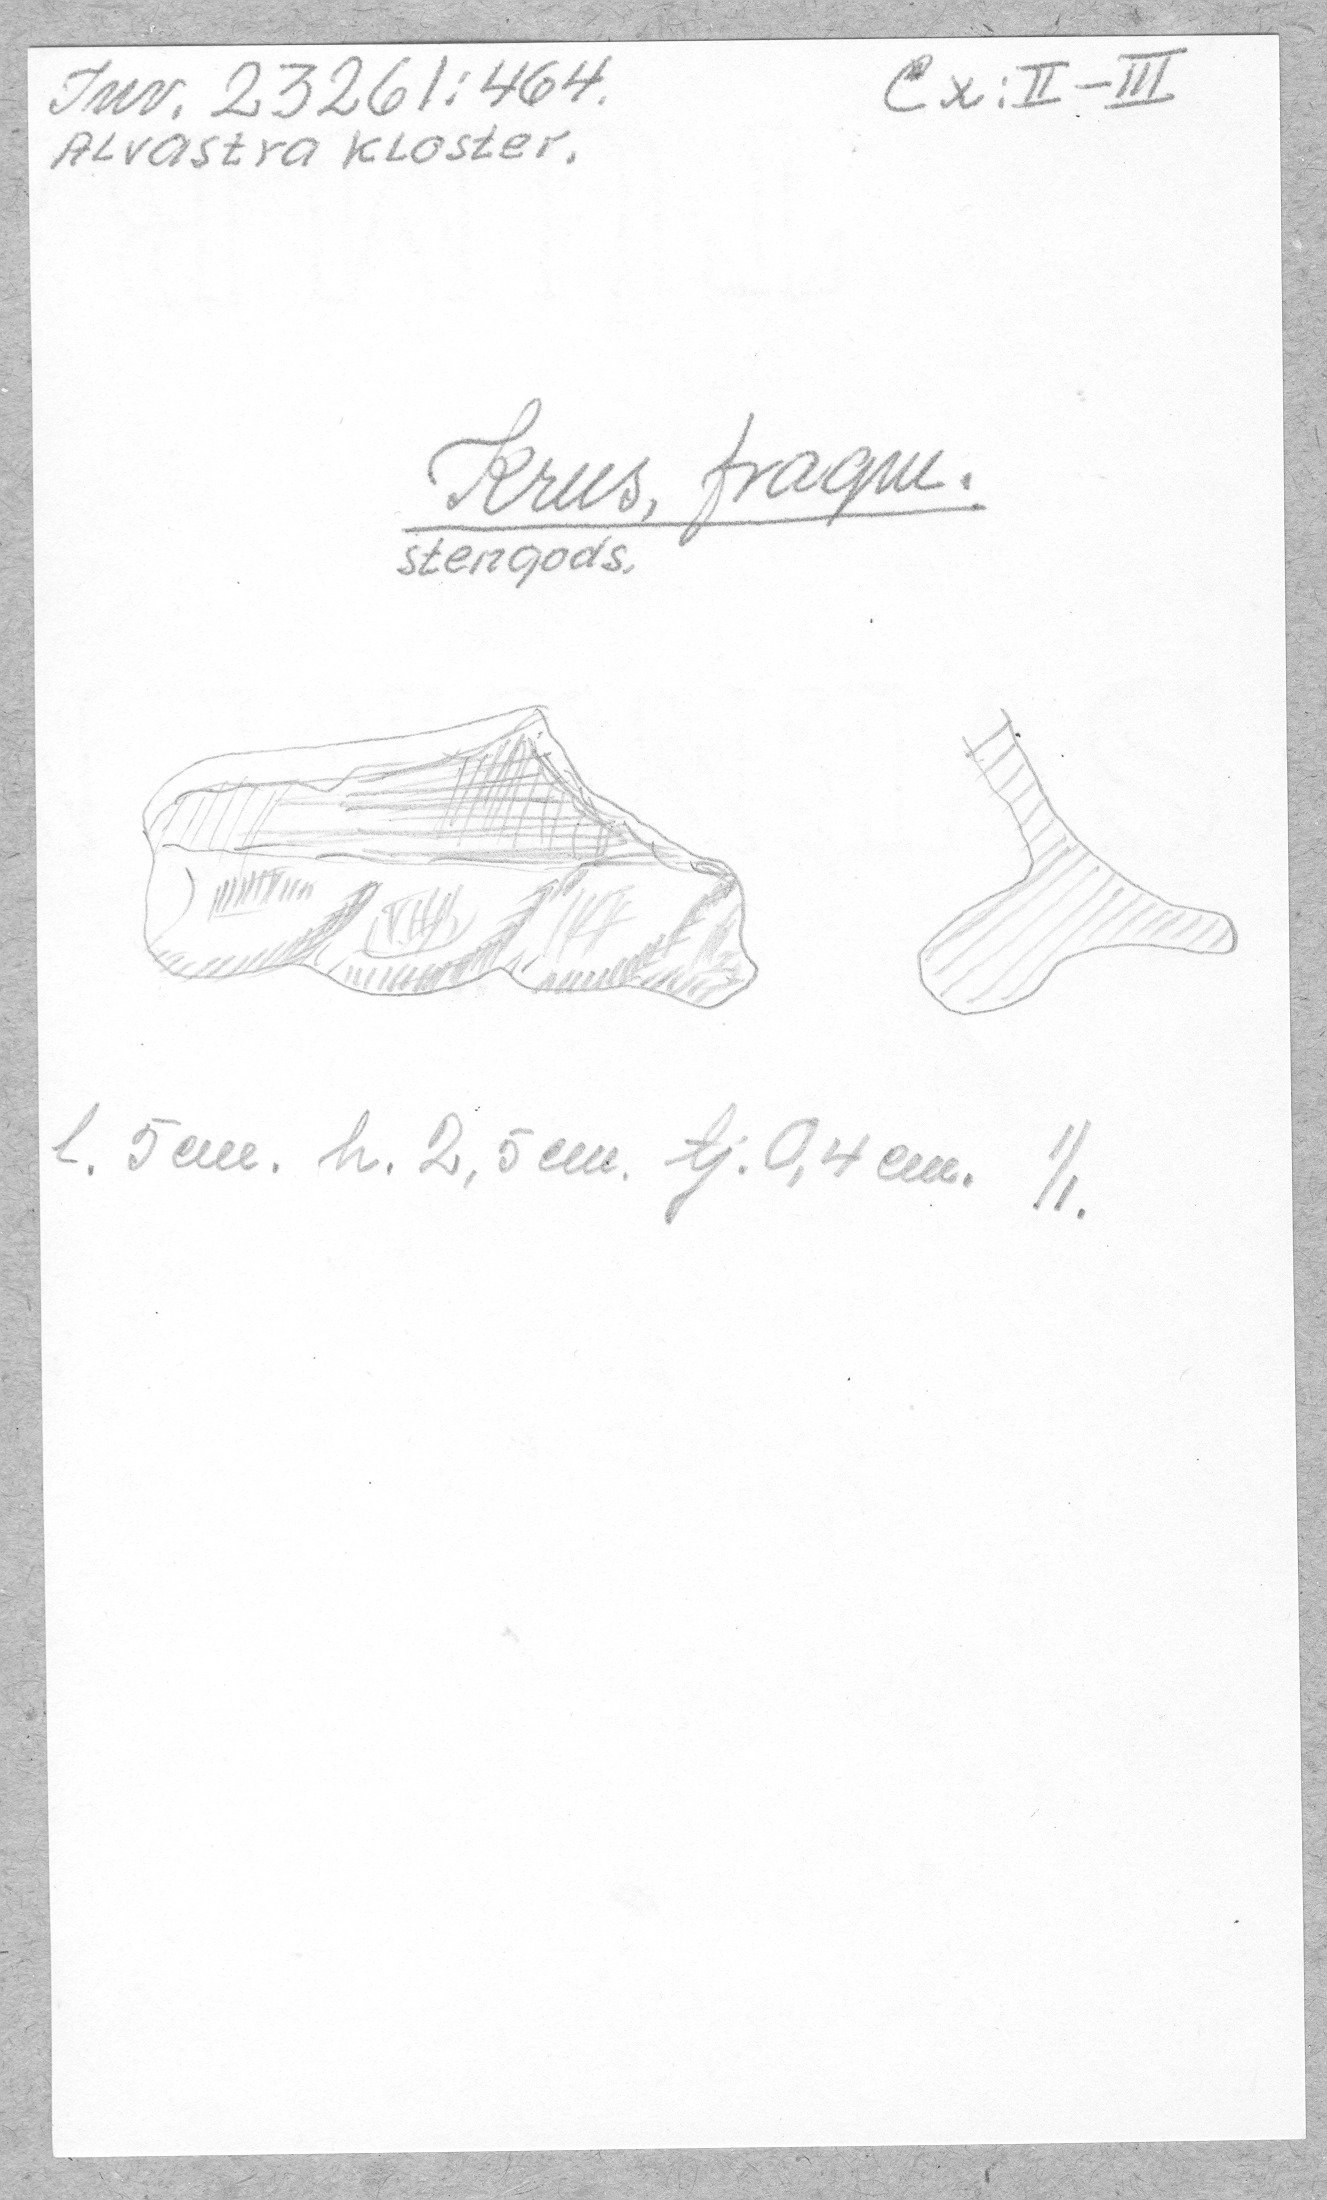 Inv. 23261:464.
Cx: II-III
Alvastra kloster.
Krus, fragm.
stengods.
l. 5 cm. h. 2,5 cm. tj. 0,4 cm. 1/1.